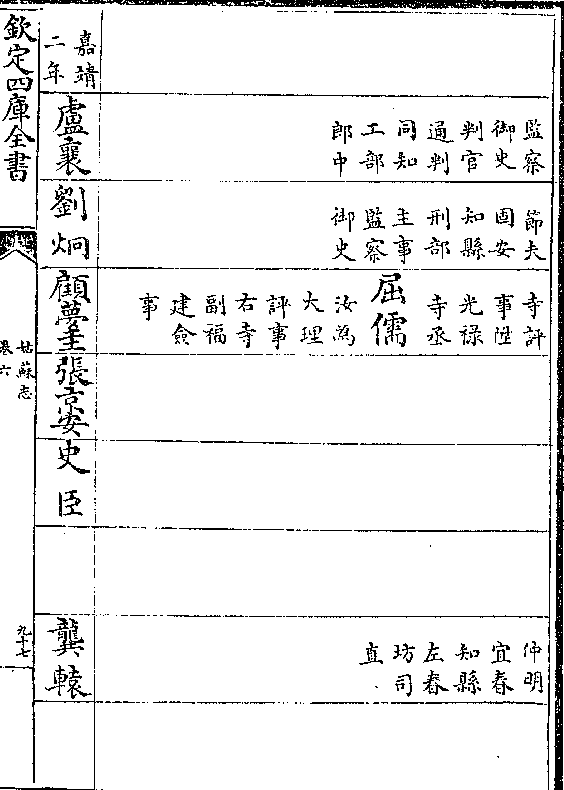 監察
御史
判官
通判
同知
工部
郎中
節夫
固安
知縣
刑部
主事
監察
御史
寺評
事陞
光禄
寺丞
屈儒
汝為
大理
評事
右寺
副福
建僉
事
仲明
宜春
知縣
左春
坊司
直
嘉靖
二年
盧襄
劉炯
顧夢圭
張京安
史臣
龔轅
欽定四庫全書
姑蘇志
卷六
九十七